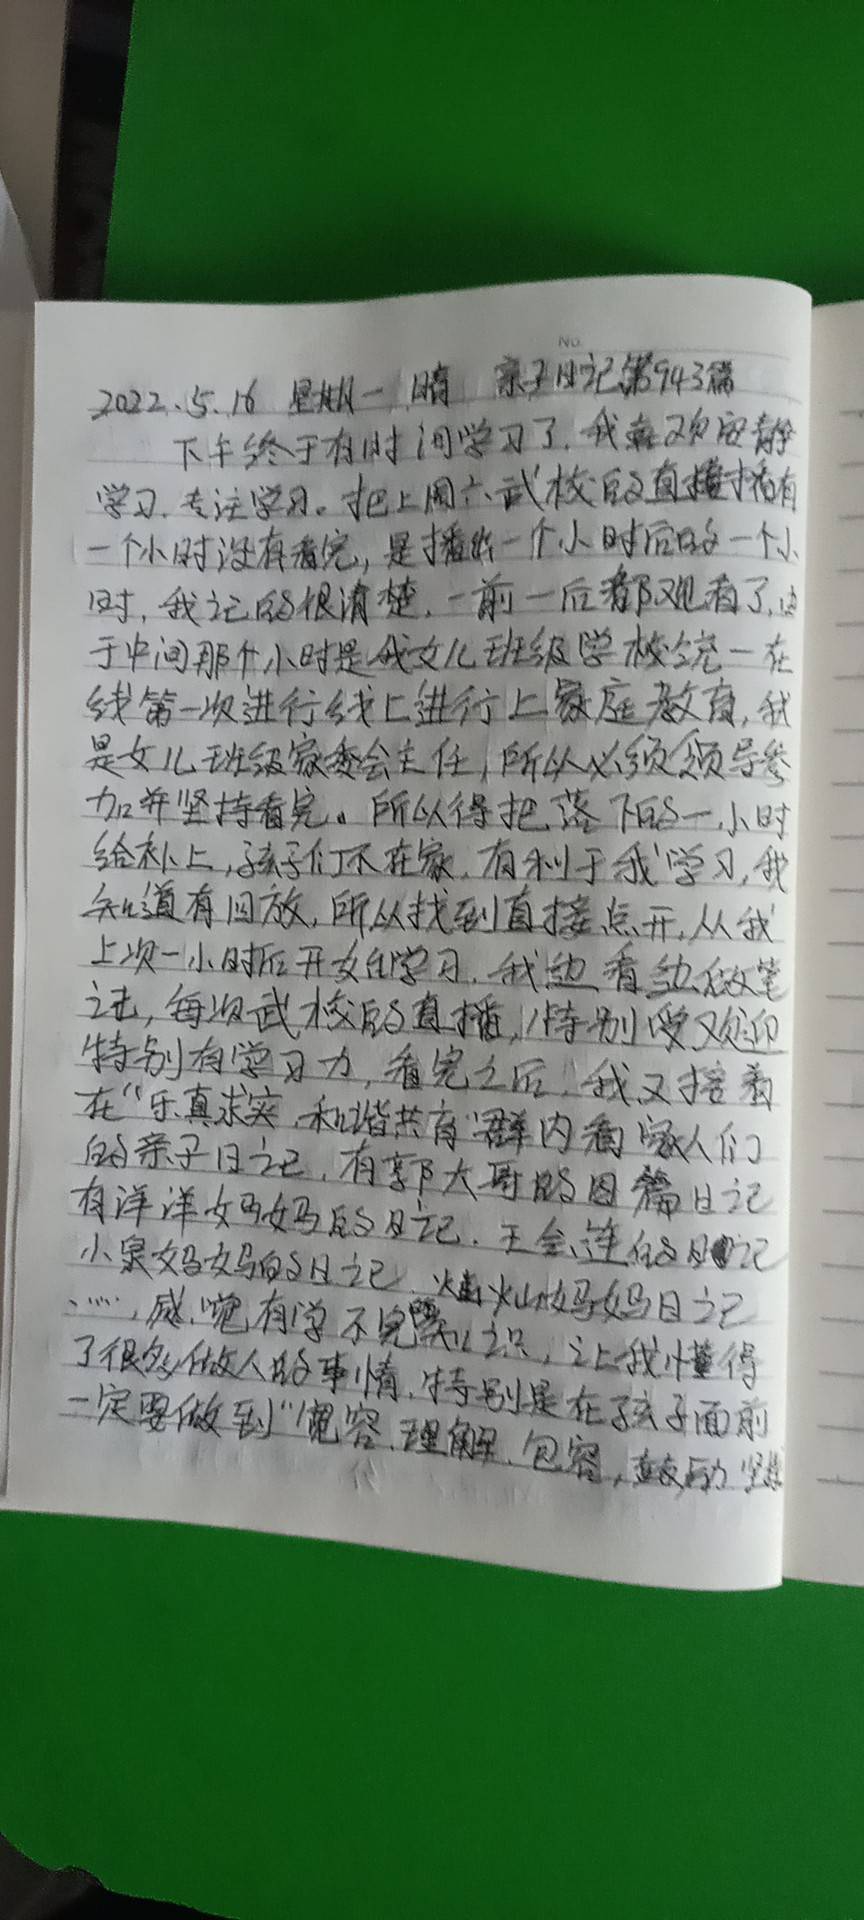 No.
2022.5.16 星期一 晴 亲子日记第943篇
下午终于有时间学习了.我喜欢安静
学习.专注学习。把上周六武校的直播播有
一个小时没有看完,是播出一个小时后的一个小
时,我记的很清楚.一前一后都观看了,由
于中间那个小时是我女儿班级学校统一在
线第一次进行线上进行上家庭教育,我
是女儿班级家委会主任,所以必须领导参
加并坚持看完。所以得把落下的一小时
给补上,孩子们不在家.有利于我学习,我
知道有回放,所以找到直接点开,从我
上次一小时后开始学习.我边看边做笔
记,每次武校的直播,特别受欢迎
特别有学习力,看完之后,我又接着
在“乐真求实、和谐共育”群内看家人们
的亲子日记,有郭大哥的四篇日记
有洋洋妈妈的日记.王会连的日记
小泉妈妈的日记、妈妈日记
……,感觉有学不完的知识,让我懂得
了很多做人的事情.特别是在孩子面前
一定要做到“宽容、理解、包容,鼓励 坚持